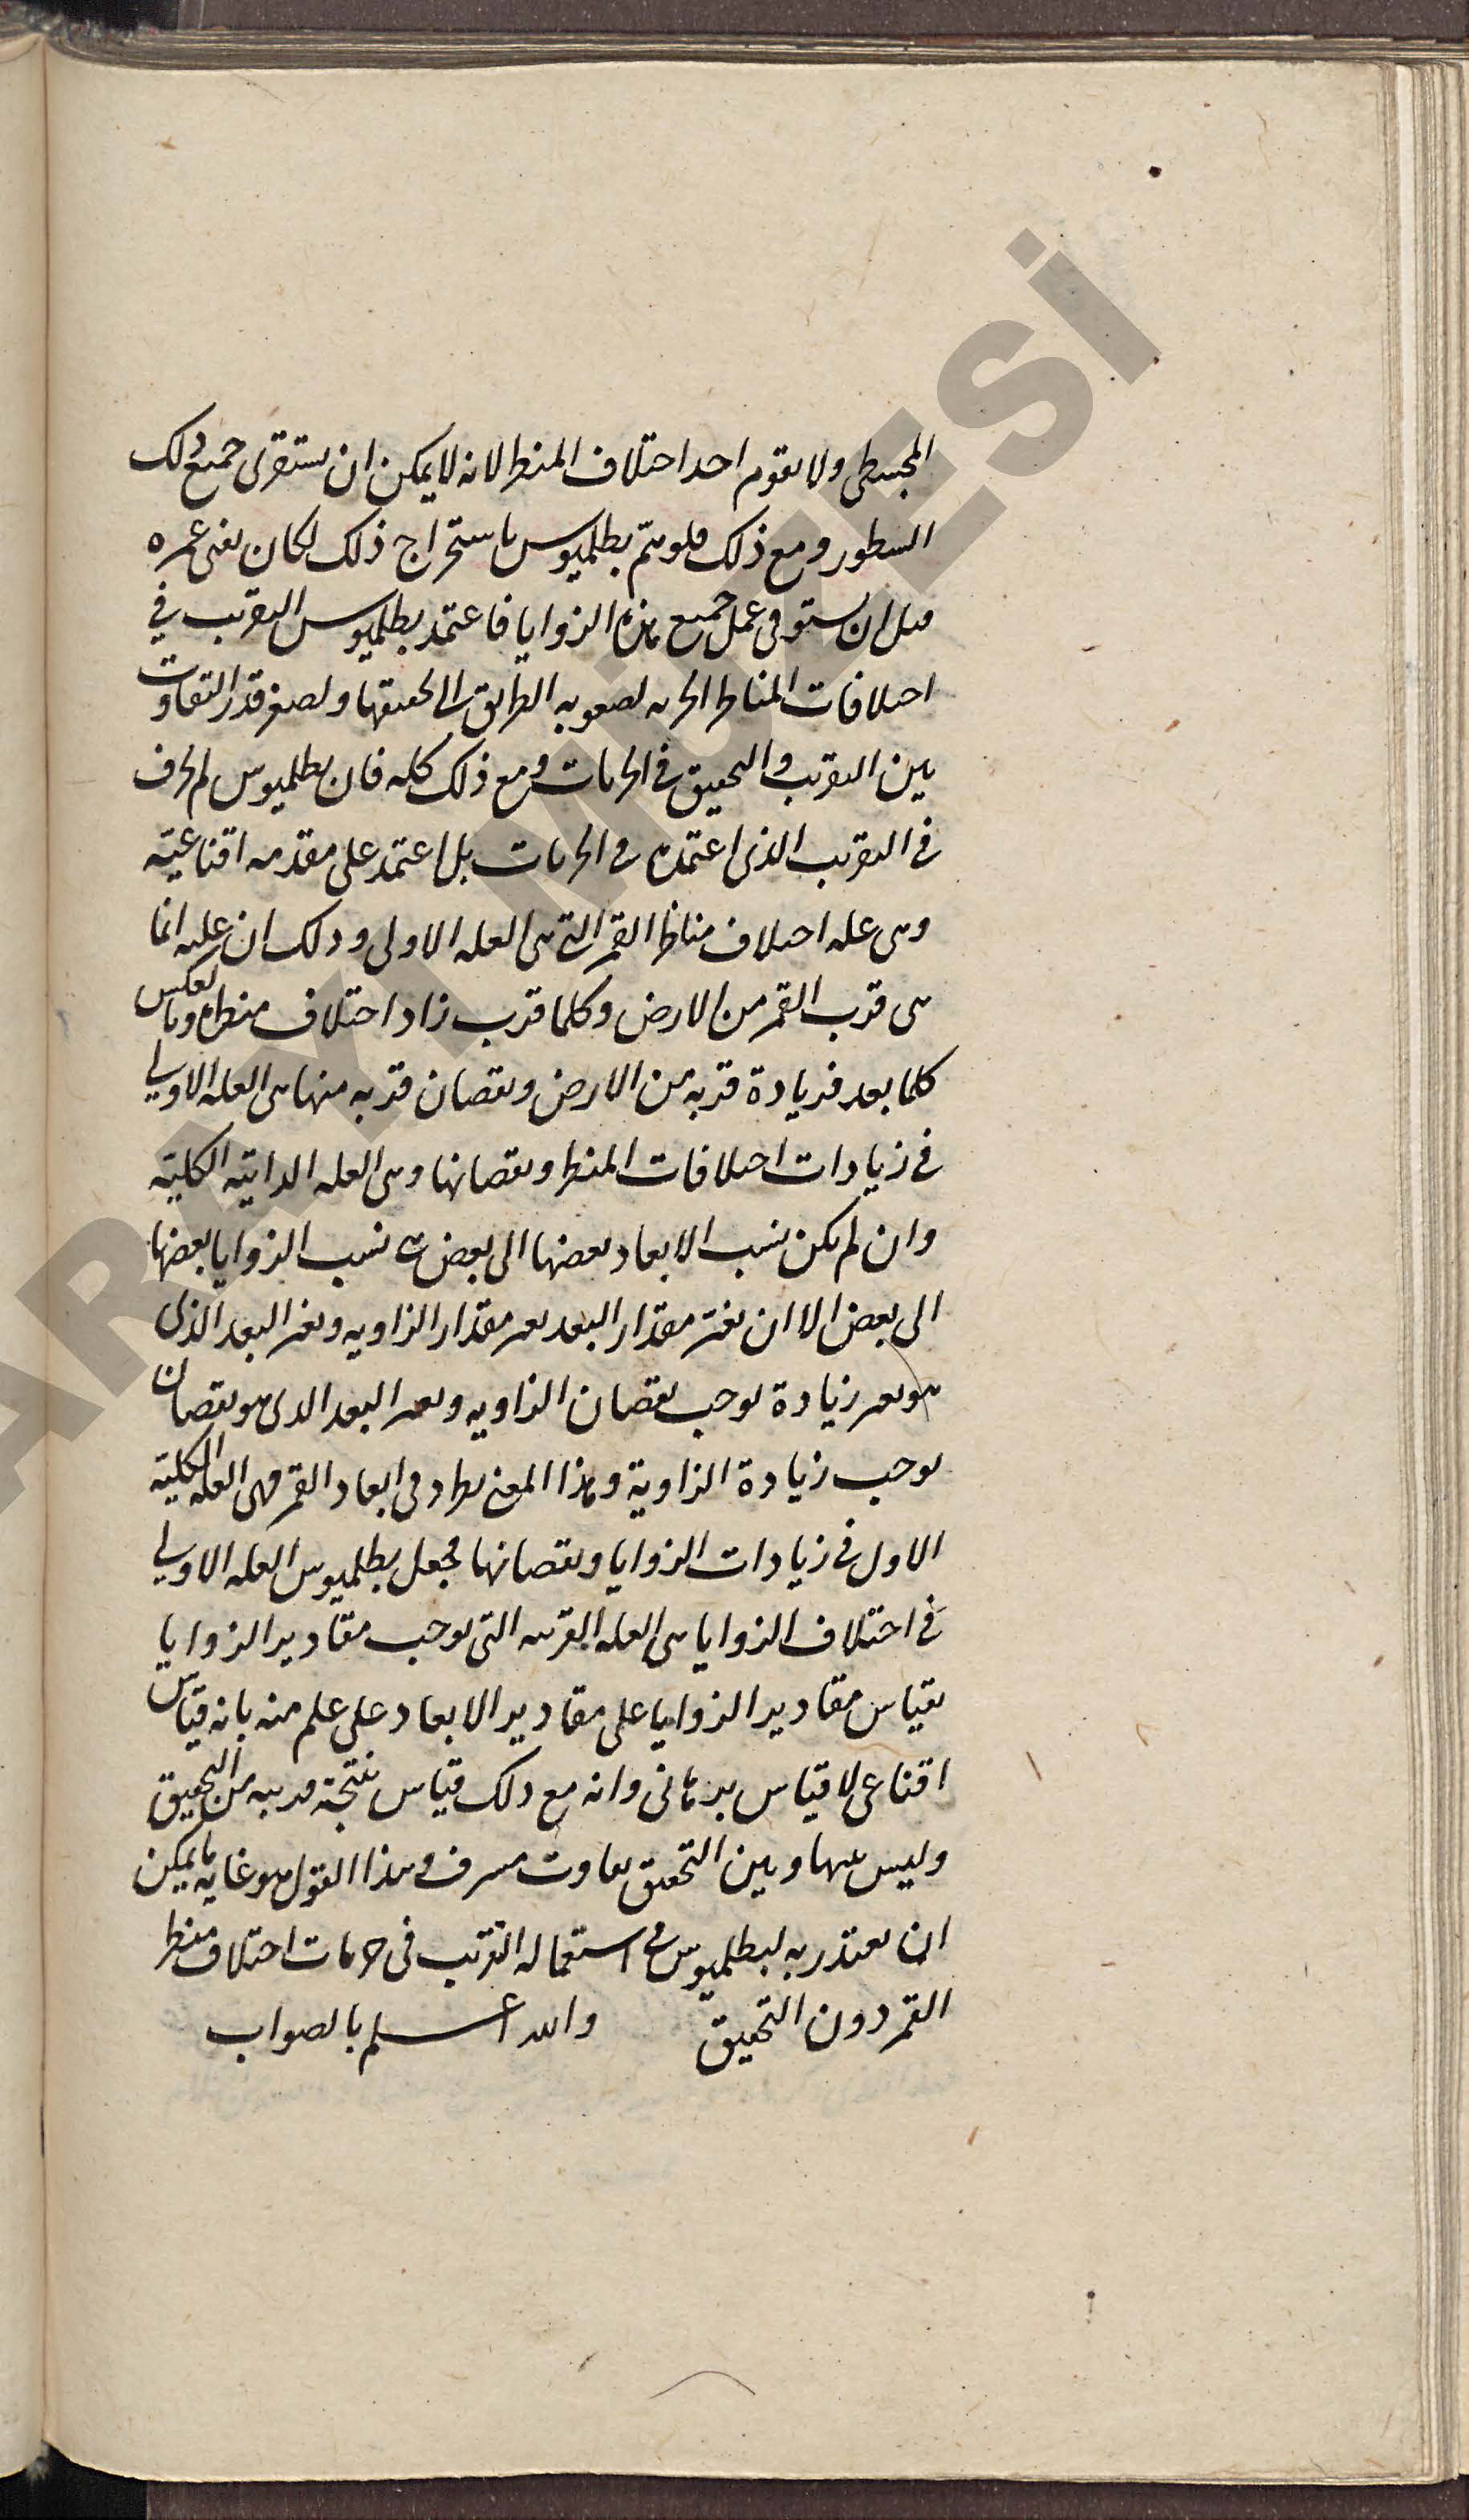 المجسطى ولا يقوم احد اختلاف المنظر لانه لا يمكن ان يستقرى جميع ذلك
السطور ومع ذلك فلو هتم بطلميوس باستخراج ذلك لكان يفنى عمره
قبل ان يستوفى عمل جميع هذه الزوايا فاعتمد بطلميوس التقريب في
اختلافات المناظر الجزئيه لصعوبه الطريق الى تحقيقها ولصغر قدر التفاوت
بين التقريب والتحقيق فى الجزئيات ومع ذلك كله فان بطلميوس لم
فى التقريب الذى اعتمده فى الجزئيات بل اعتمد على مقدمه اقناعية
وهى عله اختلاف مناظر القمر التى هى العله الاولى وذلك ان علته انما
هى قرب القمر من الارض وكلما قرب زاد اختلاف منظره وبالعكس
كلما بعد فزيادة قربه من الارض ونقصان قربه منها هى العله الاولى
فى زيادات اختلافات المنظر ونقصانها وهى العله الذاتية الكلية
وان لم يكن نسب الابعاد بعضها الى بعض نسب الزوايا بعضها
الى بعض الا ان تغير مقدار البعد يغير مقدار الزاويه وتغير البعد الذى
هو تغير زيادة يوجب نقصان الزاويه وتغير البعد الذى هو نقصان
يوجب زيادة الزاوية وهذا المعنى يطرد فى ابعاد القمر فهى العله الكلية
الاول فى زيادات الزوايا ونقصانها فجعل بطلميوس العله الاولى
فى اختلاف الزوايا هى العله القريبه التى توجب مقادير الزوايا
بقياس مقادير الزوايا على مقادير الابعاد على علم منه بانه قياس
اقناعى لا قياس برهانى وانه مع ذلك قياس نتيجته قريبه من التحقيق
وليس بينها وبين التحقيق تفاوت مسرف وهذا القول هو غاية ما يمكن
ان يعتذر به لبطلميوس فى استعماله التقريب فى جزئيات اختلاف منظر
القمر دون التحقيق والله اعلم بالصواب
ARAYI MÜZESİ